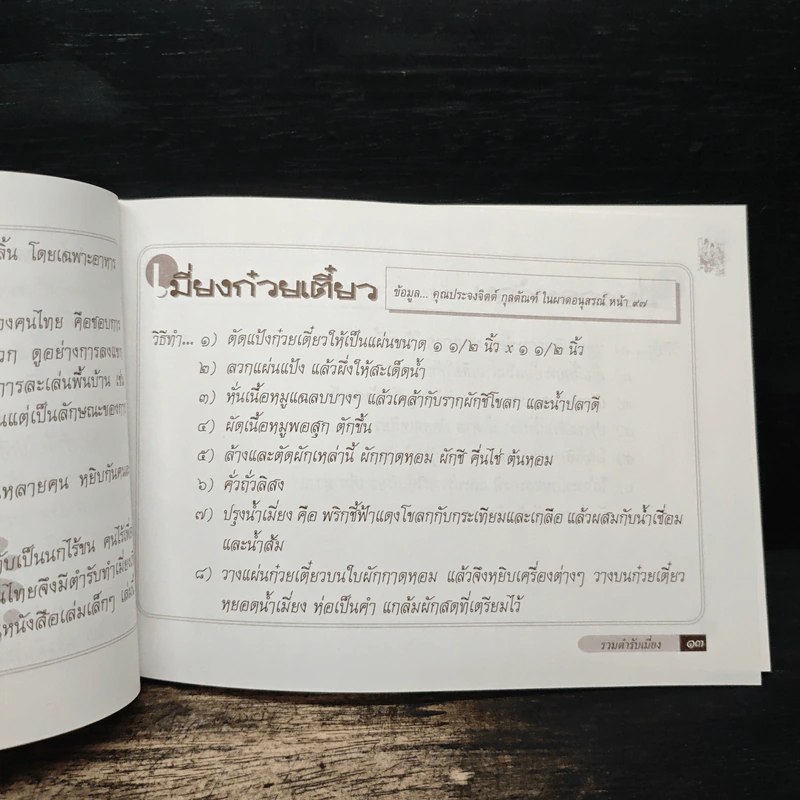 ลิ้น โดยเฉพาะอาหาร
องคนไทย คือชอบการ
วก ดูอย่างการลงแขก
การละเล่นพื้นบ้าน เช่น
นแต่เป็นลักษณะของการ
นหลายคน หยิบกันคนละ
รับเป็นนกไร้ขน คนไร้เพื่อน
นไทยจึงมีตำรับทำเมี่ยง
นหนังสือเล่มเล็กๆ เล่มนี้
เมี่ยงก๋วยเตี๋ยว
ข้อมูล... คุณประจงจิตต์ กุลตัณฑ์ ในผาดอนุสรณ์ หน้า ๙๗
วิธีทำ... ๑) ตัดแป้งก๋วยเตี๋ยวให้เป็นแผ่นขนาด ๑ ๑/๒ นิ้ว x ๑ ๑/๒ นิ้ว
๒) ลวกแผ่นแป้ง แล้วผึ่งให้สะเด็ดน้ำ
๓) หั่นเนื้อหมูแฉลบบางๆ แล้วเคล้ากับรากผักชีโขลก และน้ำปลาดี
๔) ผัดเนื้อหมูพอสุก ตักขึ้น
๕) ล้างและตัดผักเหล่านี้ ผักกาดหอม ผักชี คื่นไช่ ต้นหอม
๖) คั่วถั่วลิสง
๗) ปรุงน้ำเมี่ยง คือ พริกชี้ฟ้าแดงโขลกกับกระเทียมและเกลือ แล้วผสมกับน้ำเชื่อม
และน้ำส้ม
๘) วางแผ่นก๋วยเตี๋ยวบนใบผักกาดหอม แล้วจึงหยิบเครื่องต่างๆ วางบนก๋วยเตี๋ยว
หยอดน้ำเมี่ยง ห่อเป็นคำ แกล้มผักสดที่เตรียมไว้
รวมตำรับเมี่ยง ๑๓